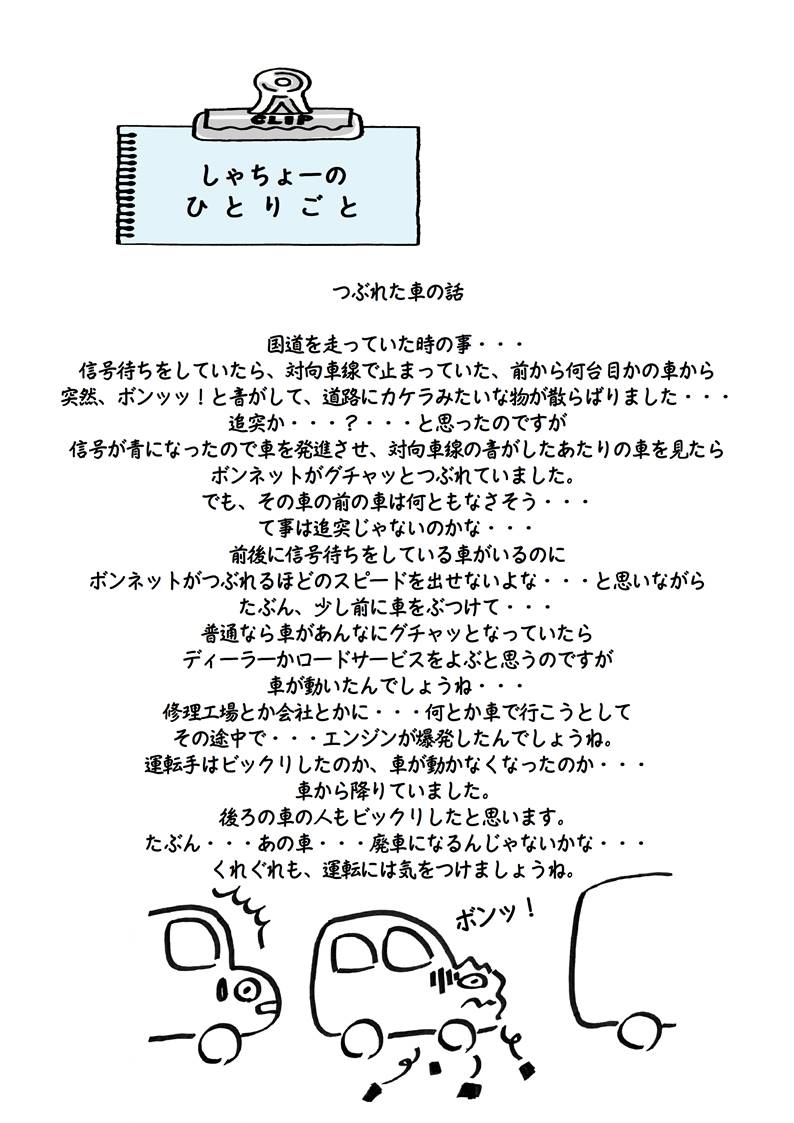 CLIP
しゃちょーの
ひとりごと
つぶれた車の話
国道を走っていた時の事・・・
信号待ちをしていたら、対向車線で止まっていた、前から何台目かの車から
突然、ボンッッ！と音がして、道路にカケラみたいな物が散らばりました・・・
追突か・・・？・・・と思ったのですが
信号が青になったので車を発進させ、対向車線の音がしたあたりの車を見たら
ボンネットがグチャッとつぶれていました。
でも、その車の前の車は何ともなさそう・・・
て事は追突じゃないのかな・・・
前後に信号待ちをしている車がいるのに
ボンネットがつぶれるほどのスピードを出せないよな・・・と思いながら
たぶん、少し前に車をぶつけて・・・
普通なら車があんなにグチャッとなっていたら
ディーラーかロードサービスをよぶと思うのですが
車が動いたんでしょうね・・・
修理工場とか会社とかに・・・何とか車で行こうとして
その途中で・・・エンジンが爆発したんでしょうね。
運転手はビックリしたのか、車が動かなくなったのか・・・
車から降りていました。
後ろの車の人もビックリしたと思います。
たぶん・・・あの車・・・廃車になるんじゃないかな・・・
くれぐれも、運転には気をつけましょうね。
ボンッ！